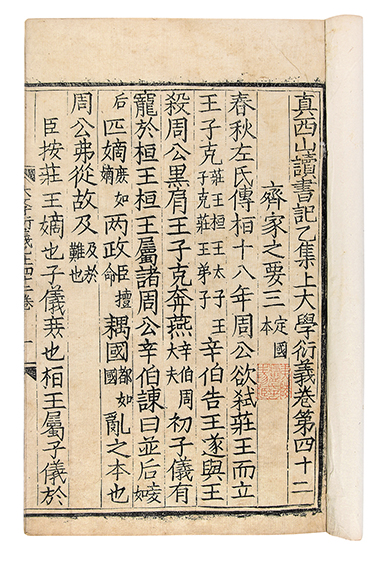 真西山讀書記乙集上大學衍義卷第四十二
齊家之要三 定國本
春秋左氏傳桓十八年周公欲弑莊王而立
王子克莊王桓王太子王子克莊王弟子辛伯告王遂與王
殺周公黒肩王子克奔燕辛伯周大夫初子儀有
寵於桓王桓王屬諸周公辛伯諫曰並后妾如
后匹嫡庶如嫡两政臣擅命耦國都如國亂之本也
周公弗從故及及於難也
臣按莊王嫡也子儀庶也桓王屬子儀於